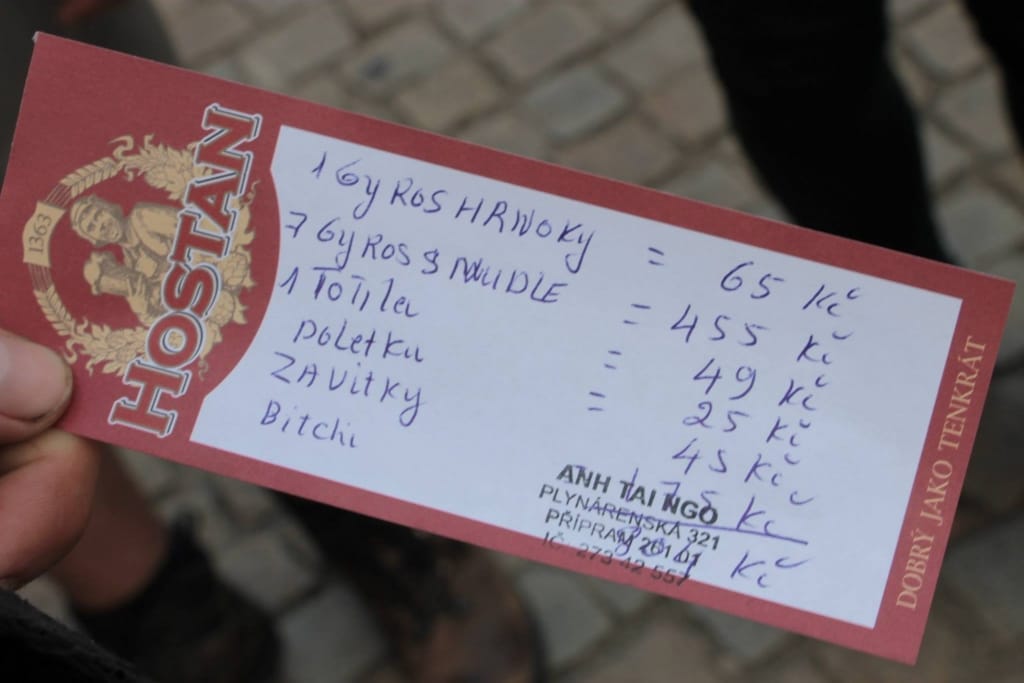 HOSTAN
1363
1 Gy ROS HRNOKY = 65 Kč
7 Gy ROS S NUDLE = 455 Kč
1 ToTila = 49 Kč
poletku = 25 Kč
ZAVITKY 45 Kč
Bitchi 175 Kč
Kč
ANH TAI NGO
PLYNÁRENSKÁ 321
PŘÍPRAM 261 01
IČ 273 42 557
DOBRÝ JAKO TENKRÁT